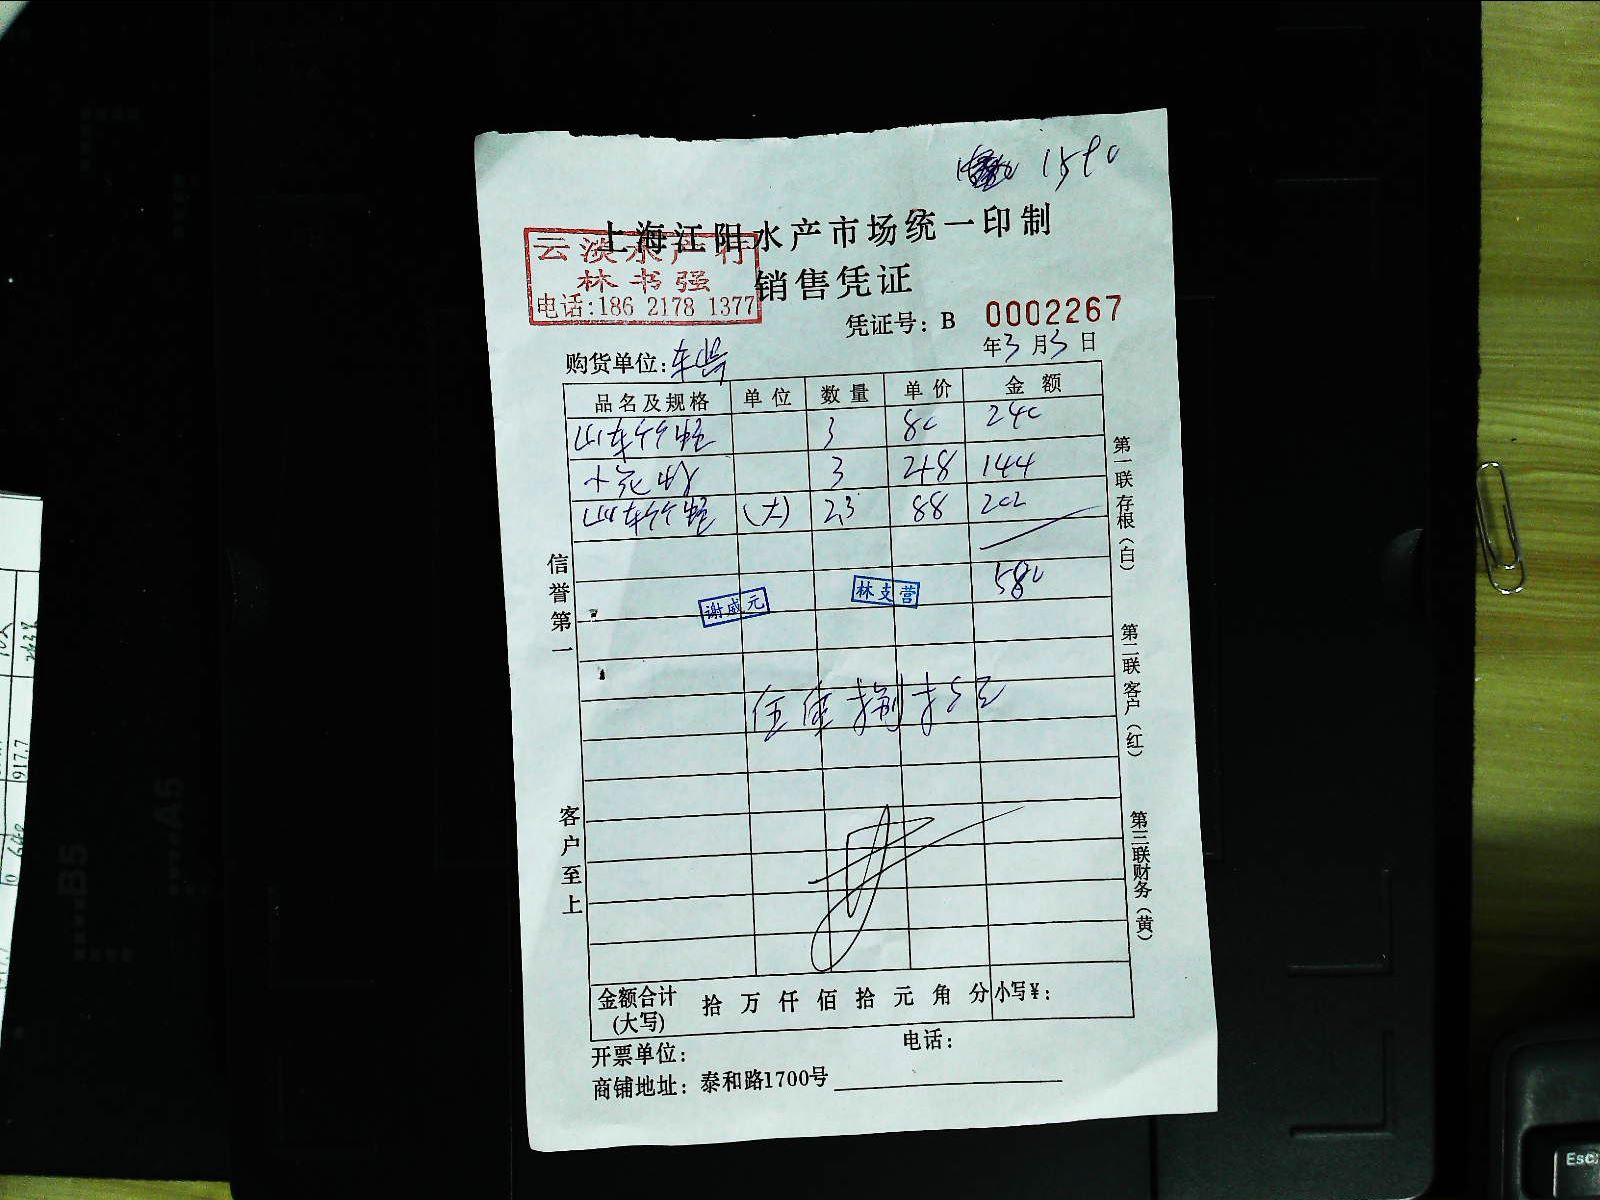 1590
上海江阳水产市场统一印制
云淡水产行
林书强
电话:186 2178 1377
销售凭证
凭证号: B 0002267
年3月3日
购货单位:
品名及规格 单位 数量 单价 金额
山东竹蛏 3 80 240
小花蛤 3 48 144
山东竹蛏 (大) 2.3 88 202
580
谢威元
林支营
伍佰捌拾元
信誉第一
客户至上
第一联存根(白)
第二联客户(红)
第三联财务(黄)
金额合计 拾 万 仟 佰 拾 元 角 分 小写¥:
(大写)
开票单位: 电话:
商铺地址: 泰和路1700号
B5
A5
917.7
Esc